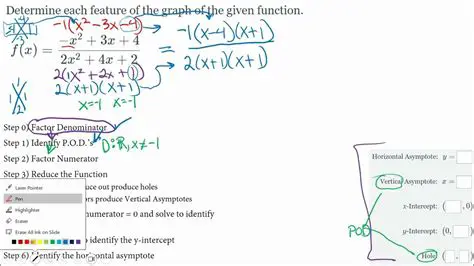 Determine each feature of the graph of the given function.
-1(x²-3x-4)
f(x) = -x² + 3x + 4 / 2x² + 4x + 2 = -1(x-4)(x+1) / 2(x+1)(x+1)
2(1x²+2x+1)
2(x+1)(x+1)
x=-1 x=-1
Step 0) Factor Denominator
Step 1) Identify P.O.D.'s D: ℝ, x≠-1
Step 2) Factor Numerator
Step 3) Reduce the Function
uce out produce holes
ors produce Vertical Asymptotes
numerator = 0 and solve to identify
to identify the y-intercept
Step 6) Identify the horizontal asymptote
Laser Pointer
Pen
Highlighter
Eraser
Erase All Ink on Slide
Horizontal Asymptote: y =
Vertical Asymptote: x =
x-Intercept: ( , 0)
y-Intercept: (0, )
POD
Hole: ( ,